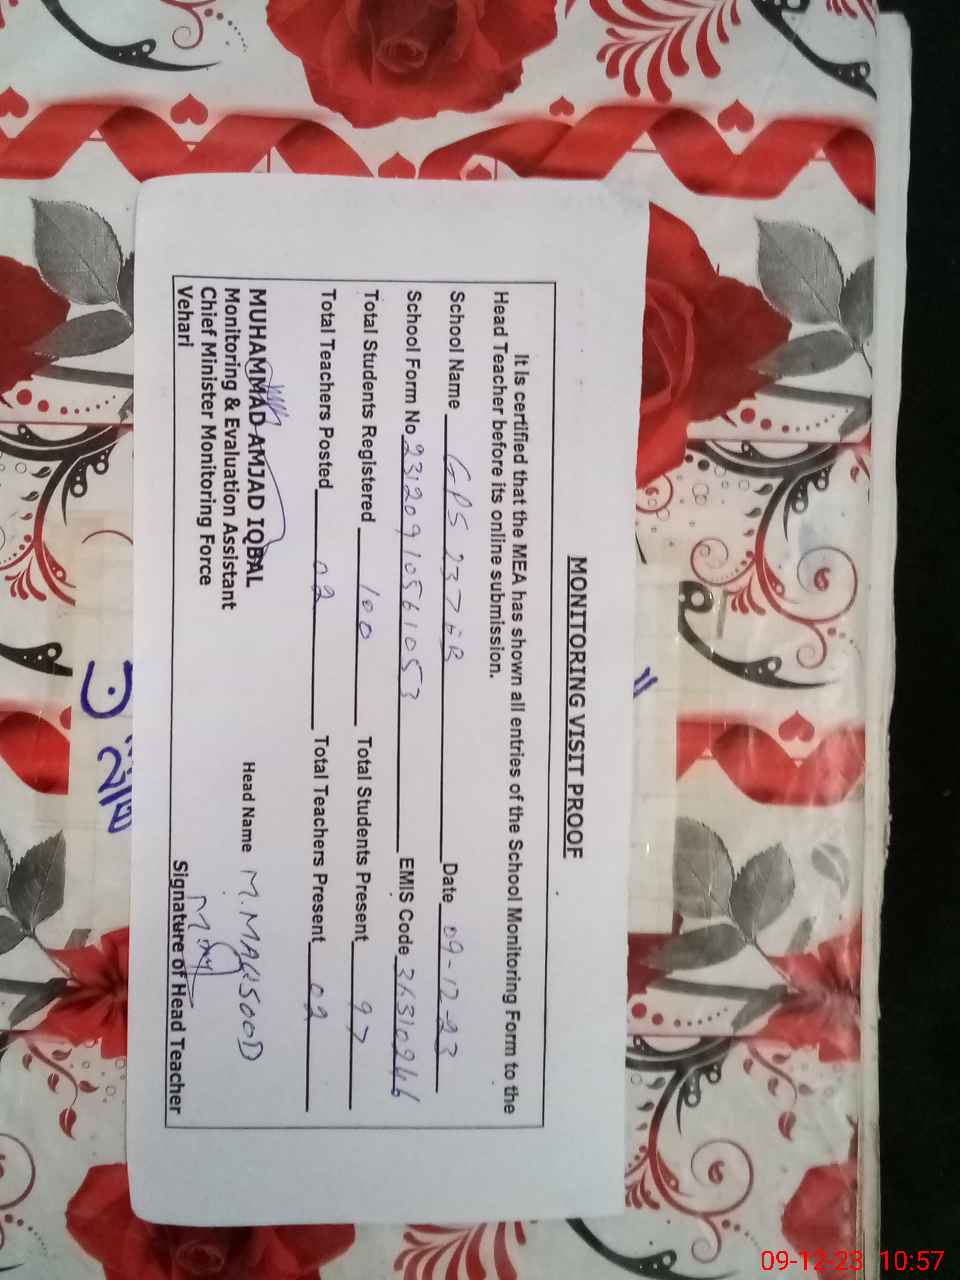 MONITORING VISIT PROOF
It is certified that the MEA has shown all entries of the School Monitoring Form to the
Head Teacher before its online submission.
School Name GPS 237 EB Date 09-12-23
School Form No 23120910561053 EMIS Code 36310246
Total Students Registered 100 Total Students Present 97
Total Teachers Posted 02 Total Teachers Present 02
MUHAMMAD AMJAD IQBAL Head Name M. MAQSOOD
Monitoring & Evaluation Assistant
Chief Minister Monitoring Force
Vehari Signature of Head Teacher
09-12-23 10:57